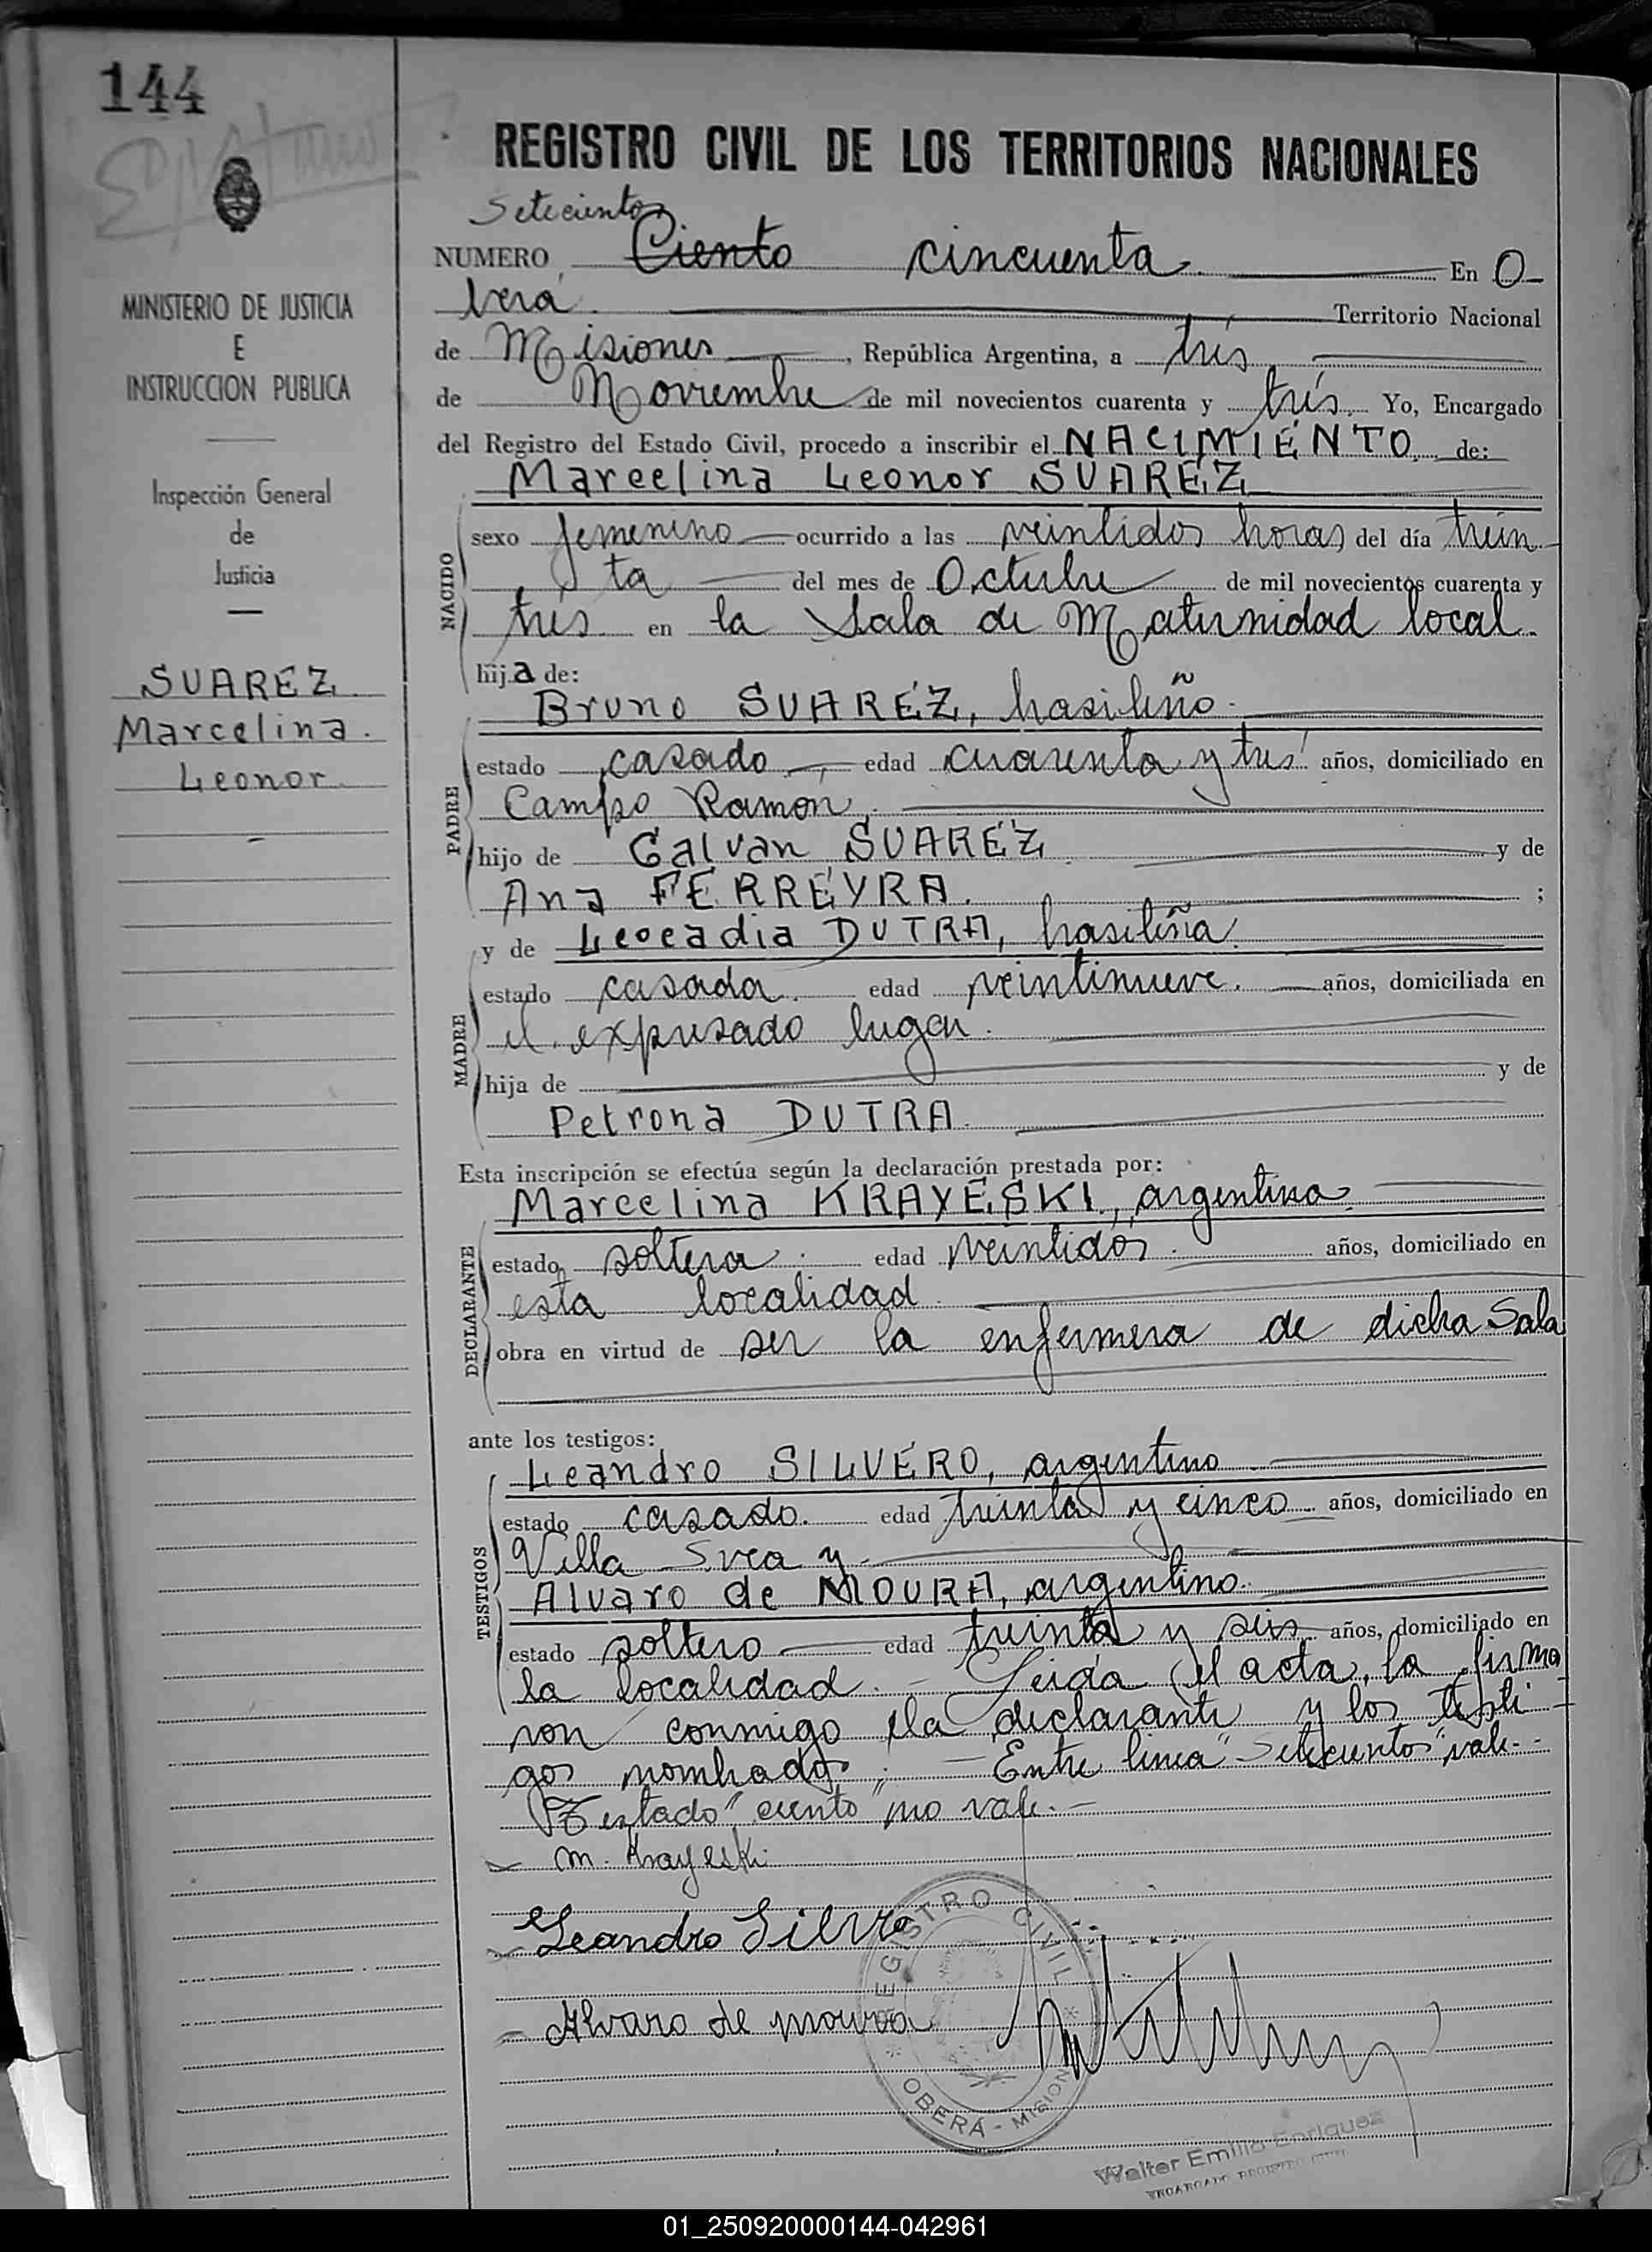 144
REGISTRO CIVIL DE LOS TERRITORIOS NACIONALES
Setecientos
NUMERO Ciento cincuenta. En O-
berá. Territorio Nacional
de Misiones, República Argentina, a tres
de Noviembre de mil novecientos cuarenta y tres. Yo, Encargado
del Registro del Estado Civil, procedo a inscribir el NACIMIENTO de:
Marcelina Leonor SUAREZ
NACIDO
sexo femenino ocurrido a las veintidos horas del día trein
ta del mes de Octubre de mil novecientos cuarenta y
tres en la Sala de Maternidad local.
hija de:
Bruno SUAREZ, brasileño.
PADRE
estado casado, edad cuarenta y tres años, domiciliado en
Campo Ramon,
hijo de Galvan SUAREZ y de
Ana FERREYRA. ;
y de Leocadia DUTRA, brasileña.
MADRE
estado casada. edad veintinueve. años, domiciliada en
el expresado lugar.
hija de y de
Petrona DUTRA.
Esta inscripción se efectúa según la declaración prestada por:
Marcelina KRAYESKI, argentina
DECLARANTE
estado soltera. edad veintidós. años, domiciliado en
esta localidad.
obra en virtud de ser la enfermera de dicha Sala
ante los testigos:
Leandro SILVERO, argentino
TESTIGOS
estado casado. edad treinta y cinco años, domiciliado en
Villa Svea y
Alvaro de MOURA, argentino.
estado soltero edad treinta y seis años, domiciliado en
la localidad. - Leida el acta, la firma
ron conmigo la declarante y los testi-
gos nombrados; - Entre linea "Setecientos" vale.-
Testado "ciento" no vale.-
M. Krayeski
Leandro Silvero
Alvaro de Moura
REGISTRO CIVIL
OBERÁ - MISIONES
Walter Emilio Enriquez
ENCARGADO REGISTRO CIVIL
MINISTERIO DE JUSTICIA
E
INSTRUCCION PUBLICA
Inspección General
de
Justicia
SUAREZ
Marcelina.
Leonor
01_250920000144-042961